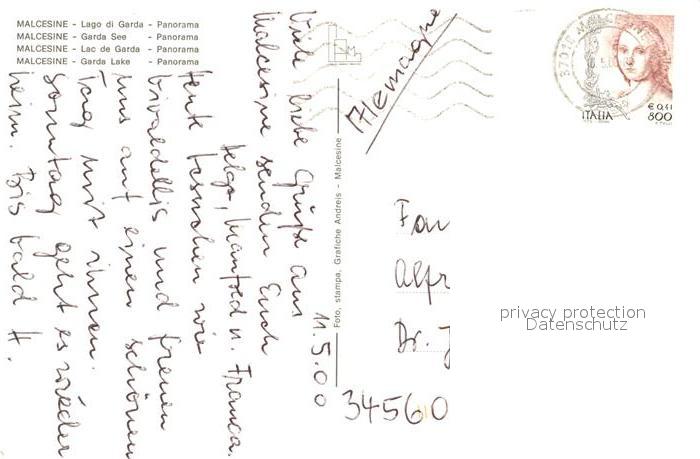 MALCESINE - Lago di Garda - Panorama
MALCESINE - Garda See - Panorama
MALCESINE - Lac de Garda - Panorama
MALCESINE - Garda Lake - Panorama
11.5.00
Viele liebe Grüße aus
Malcesine senden Euch
Helga, Manfred u. Franca.
Heute besuchen wir
Vivaldellis und freuen
uns auf einen schönen
Tag mit ihnen.
Sonntag geht es wieder
heim. Bis bald H.
Foto, stampa, Grafiche Andreis - Malcesine
Allemagne
37018 MALCESINE
ITALIA
€ 0,41
800
Fam
Alfr
Dr. J
34560
privacy protection
Datenschutz